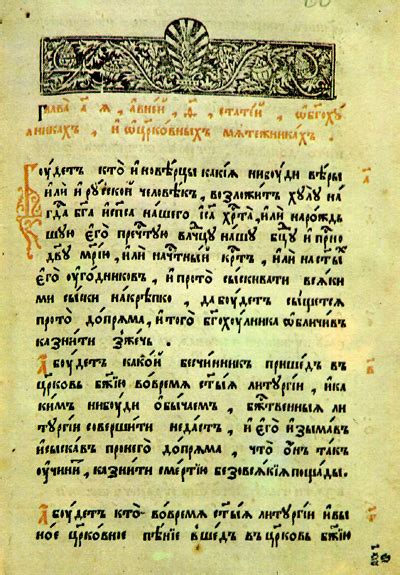 Глава а҃ я , а в ней , ѳ҃ , статей , ѡ бг҃оху
лникахъ , и ѡ цр҃ковныхъ мятежникахъ .
Боудетъ кто иновѣрцы какия нибоуди вѣры
или и роуской человѣкъ , возложитъ хулу на
гд҃а бг҃а и сп҃са нашего іс҃а хрт҃а , или на рождь
шую его прчс҃тую влдч҃цу нашу бц҃у и прсн҃о
дв҃у мр҃ию , или на чтн҃ый крт҃ъ , или на ст҃ы
его оугодниковъ , и про то сыскивати всяки
ми сыски накрѣпко , да боудетъ сыщетса
про то допряма , и того бг҃охоулника ѡбличив
казнити зжечь .
а҃
А боудетъ какой бесчинникъ пришед въ
цр҃ковь бж҃ию во время ст҃ыя литургии , и ка
кимъ нибоуди ѡбычаемъ , бжт҃венныя ли
тургии совершити не дастъ , и его изымав
и сыскав про него допряма , что онъ такъ
оучинит , казнити смертию безо всякия пощады .
в҃
А боудетъ кто во время ст҃ыя литургии и в ы
ное цр҃ковное пѣние вшед въ цр҃ковь бж҃ию